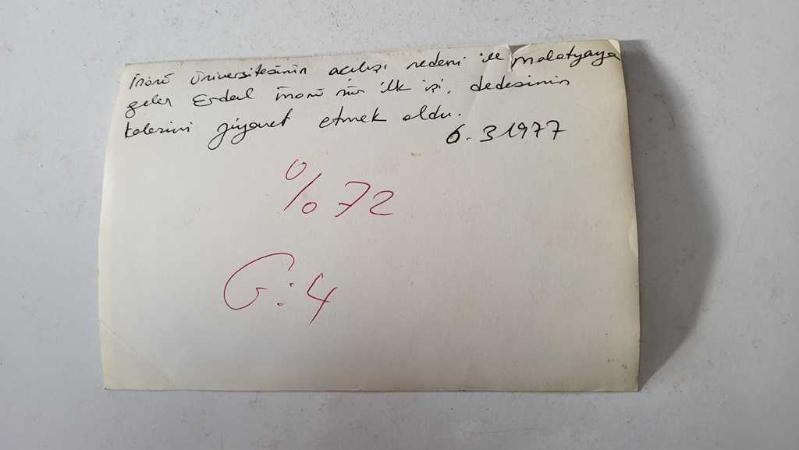 İnönü Üniversitesinin açılışı nedeni ile Malatyaya
gelen Erdal İnönü nün ilk işi, dedesinin
ziyaret etmek oldu.
6.3 1977
% 72
G:4